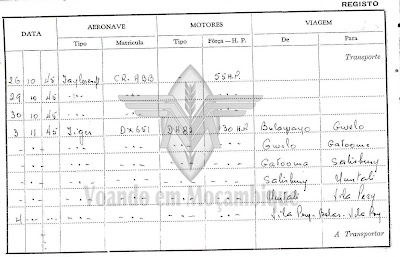 REGISTO
DATA AERONAVE MOTORES VIAGEM
Tipo Matrícula Tipo Fôrça — H. P. De Para
Transporte
26 10 45 Taylorcraft CR. ABB " 55 H.P.
29 10 45 " " " "
30 10 45 " " " "
3 11 45 Tiger DX651 DH82 130 H.P. Bulawayo Gwelo
" " " " Gwelo Gatooma
" " " " Gatooma Salisbury
" " " " Salisbury Umtali
" " " " Umtali Vila Pery
4 " " " " Vila Pery Beira. Vila Pery
A Transportar
Voando em Moçambique